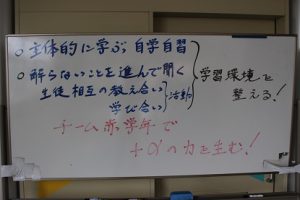 ○主体的に学ぶ自学自習
○解らないことを進んで聞く
生徒相互の教え合い
学び合い 活動
学習環境を
整える!
チーム赤学年で
+αの力を生む!